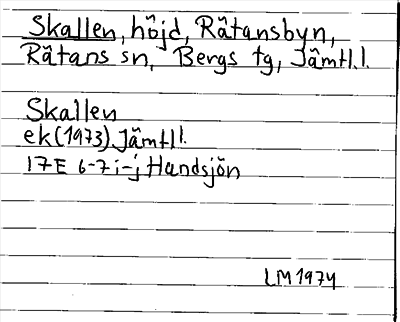 Skallen, höjd, Rätansbyn,
Rätans sn, Bergs tg, Jämtl.l.
Skallen
ek (1973) Jämtl l.
17E 6-7 i-j Handsjön
LM 1974